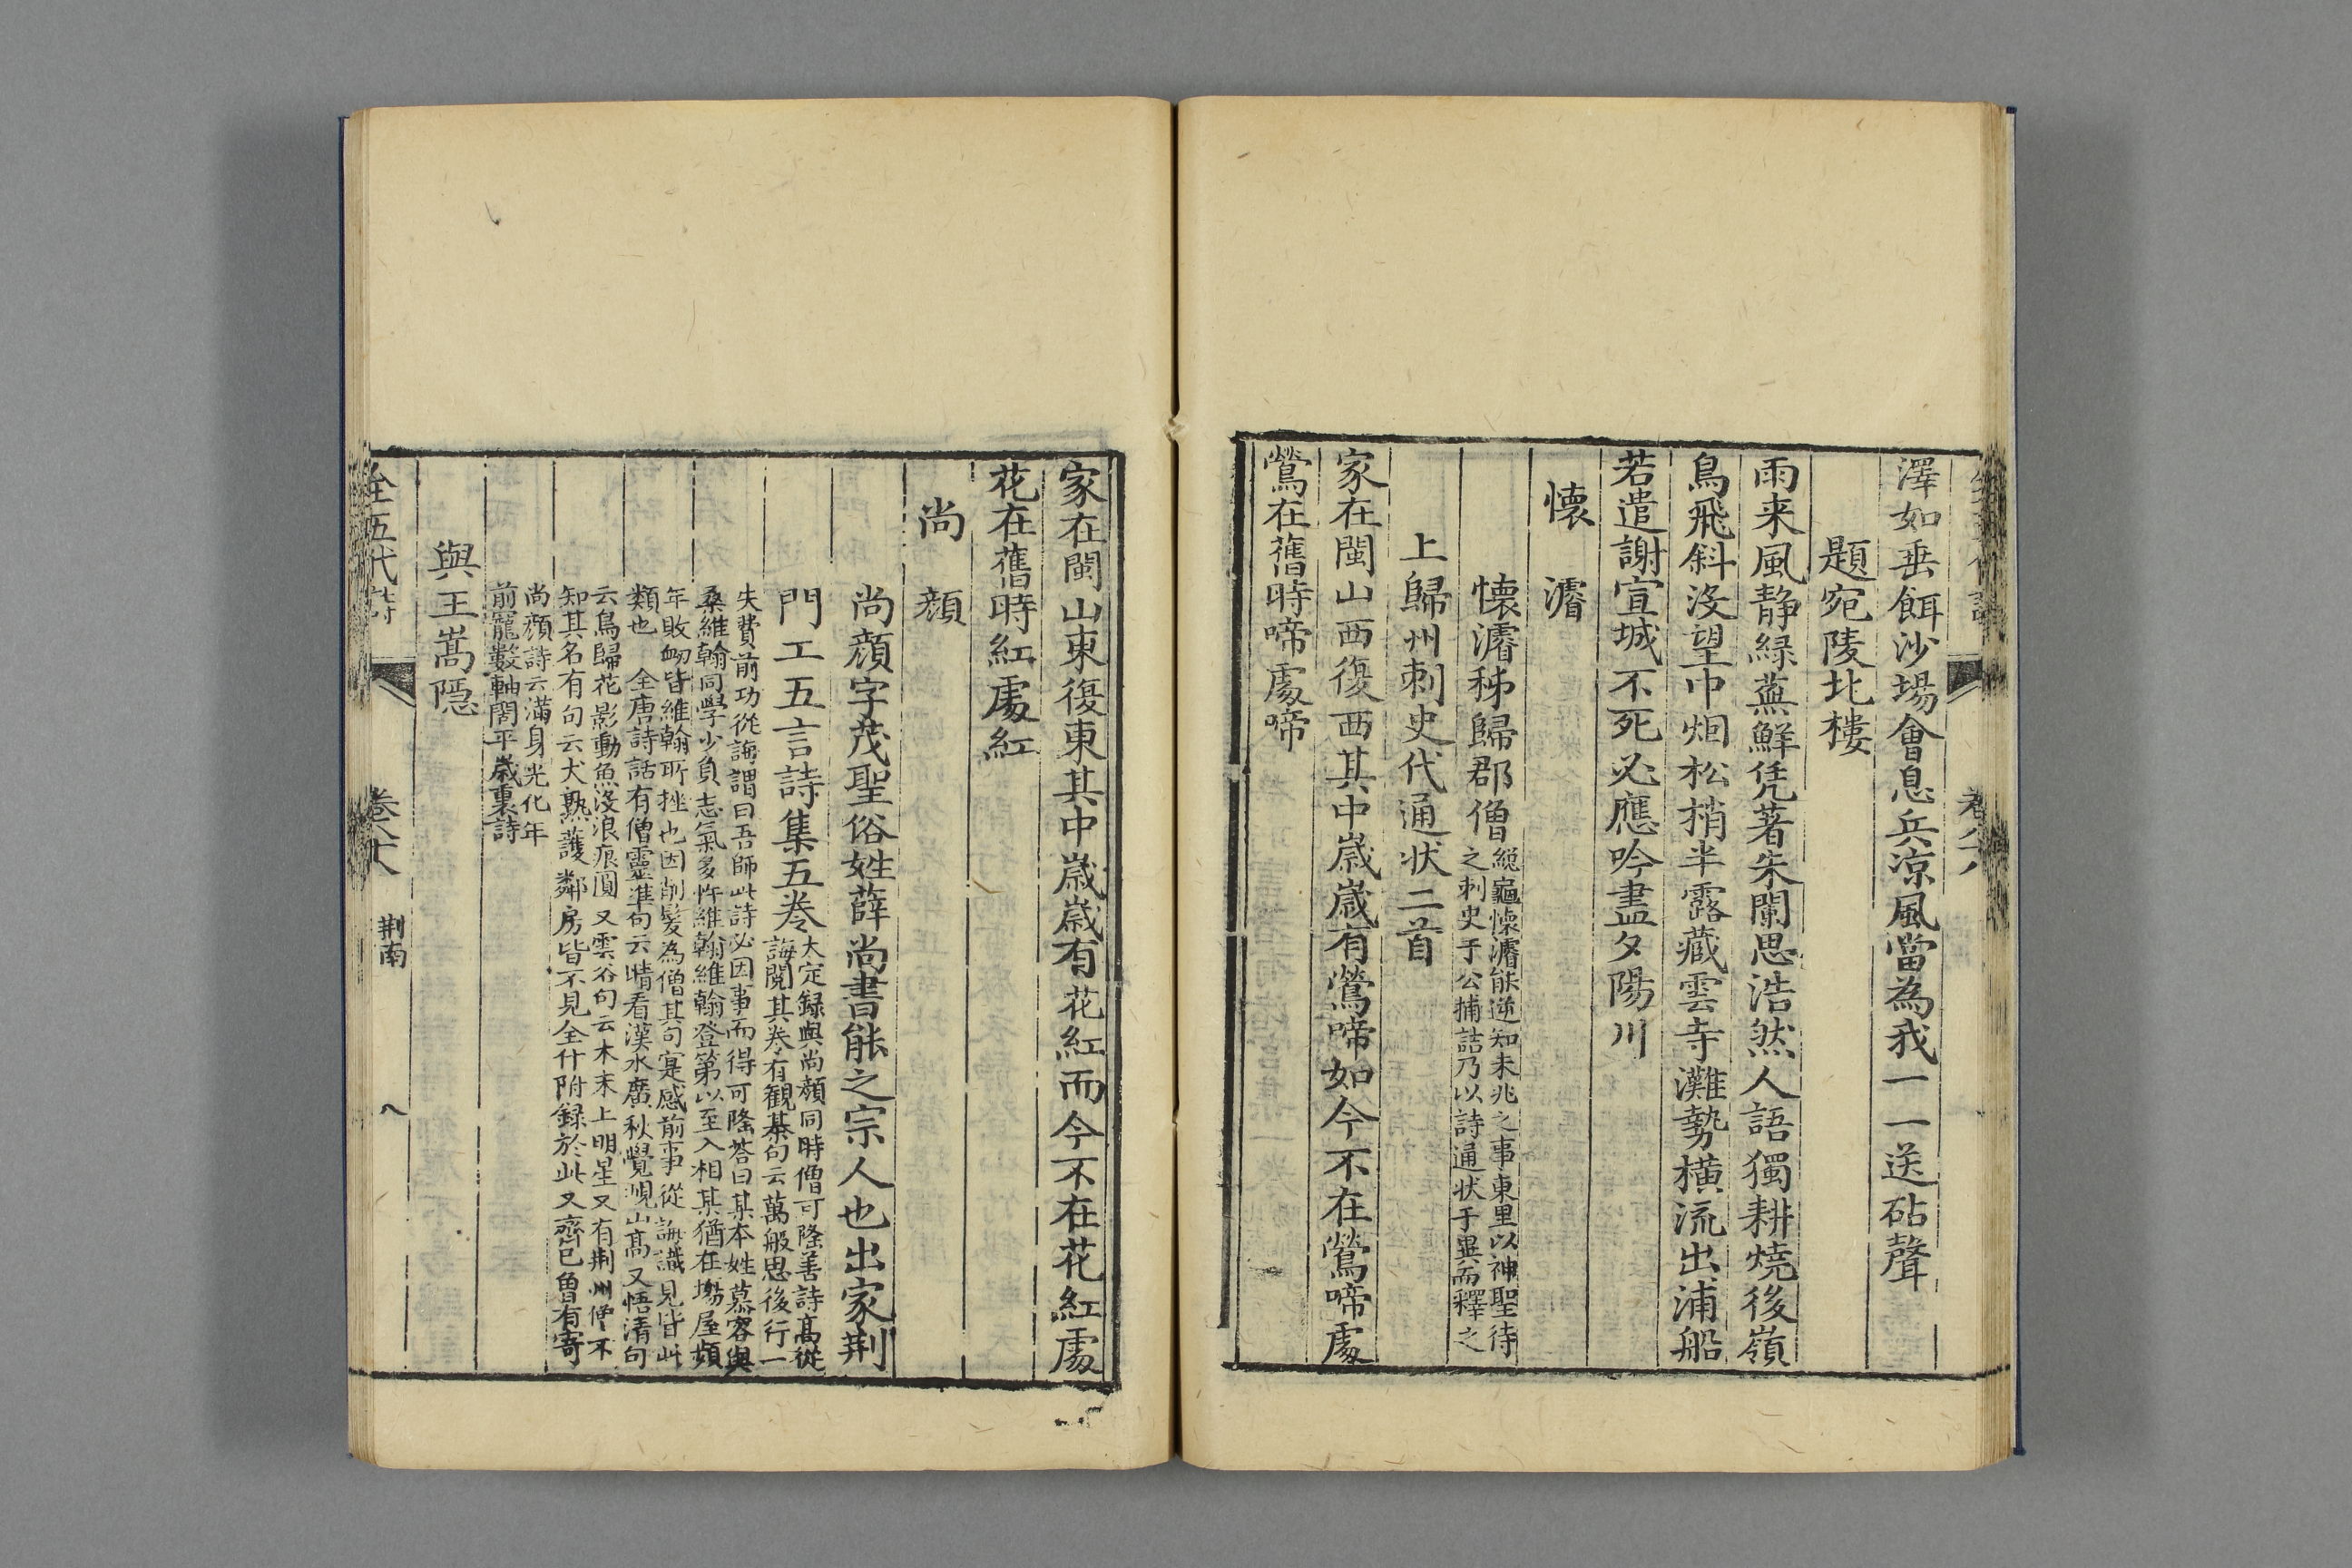 澤如垂餌沙場會息兵凉風當為我一一送砧聲
題宛陵北樓
雨来風静緑蕪鮮凭著朱闌思浩然人語獨耕燒後嶺
鳥飛斜沒望中烟松梢半露藏雲寺灘勢橫流出浦船
若遣謝宣城不死必應吟盡夕陽川
懷濬
懷濬秭歸郡僧
總龜懷濬能逆知未兆之事東里以神聖待
之刺史于公捕詰乃以詩通状于異而釋之
上歸州刺史代通状二首
家在閩山西復西其中歳歳有鶯啼如今不在鶯啼處
鶯在舊時啼處啼
家在閩山東復東其中歳歳有花紅而今不在花紅處
花在舊時紅處紅
尚顔
尚顔字茂聖俗姓薛尚書能之宗人也出家荆
門工五言詩集五卷
大定録與尚顔同時僧可隆善詩高從
誨閱其卷有觀棊句云萬般思後行一
失費前功從誨謂曰吾師此詩必因事而得可隆荅曰某本姓慕容與
桑維翰同學少負志氣多忤維翰維翰登第以至入相某猶在塲屋頻
年敗衂皆維翰所挫也因削髮為僧其句寔感前事從誨識見皆此
類也 全唐詩話有僧靈準句云晴看漢水廣秋覺峴山高又悟清句
云鳥歸花影動魚沒浪痕圓又雲谷句云木末上明星又有荆州僧不
知其名有句云犬熟護鄰房皆不見全什附録於此又齊已曾有寄
尚顔詩云滿身光化年
前寵數軸開平歳裏詩
與王嵩隱
全五代詩
卷八
荆南
八